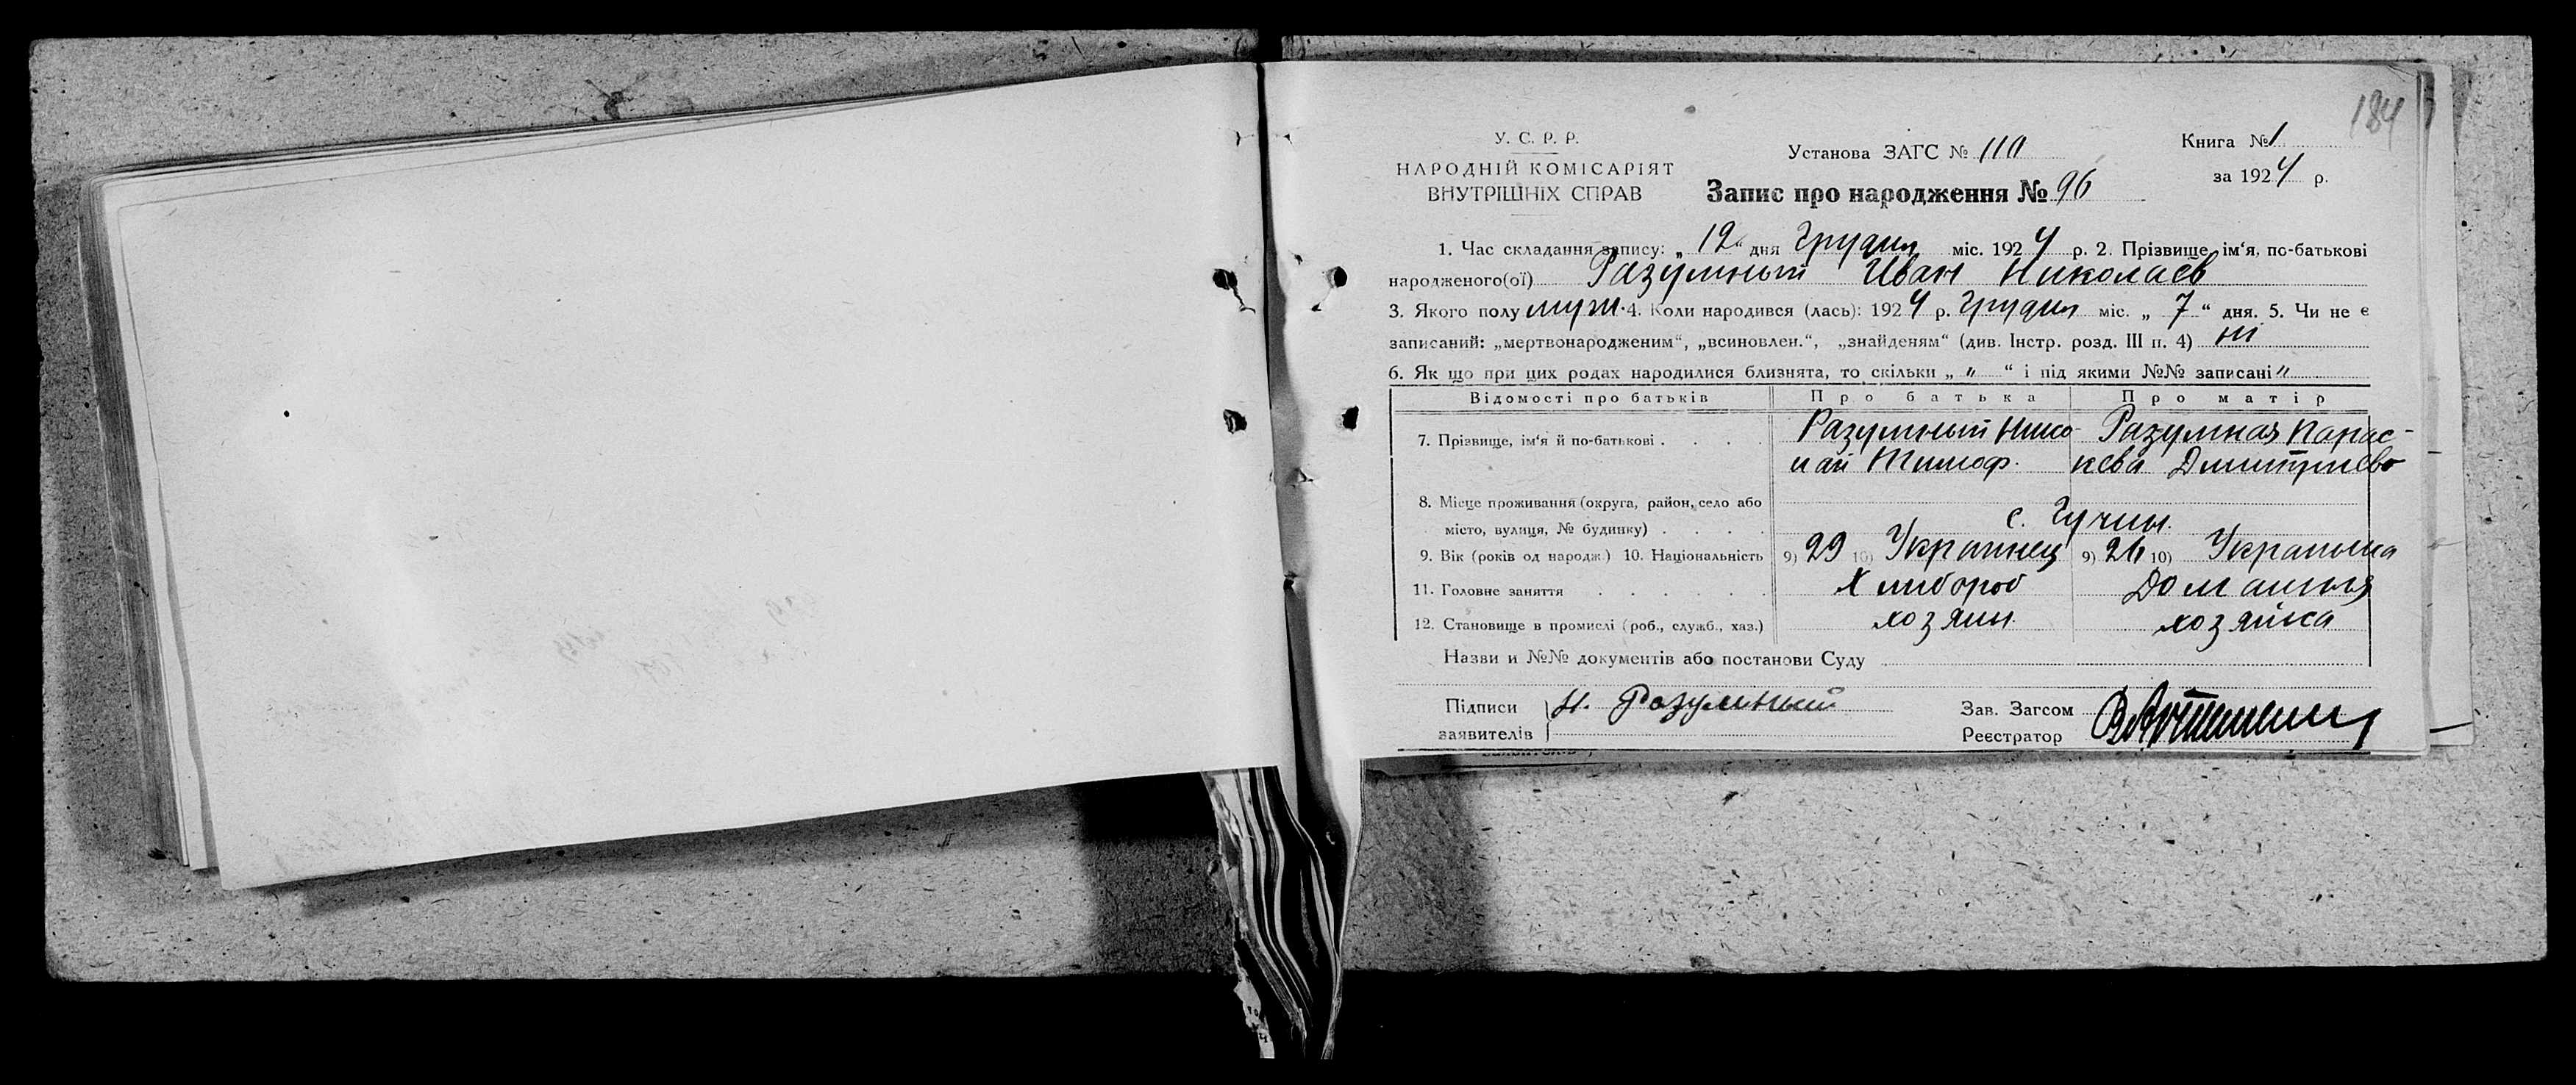 184
У. С. Р. Р.
НАРОДНІЙ КОМІСАРІЯТ
ВНУТРІШНІХ СПРАВ
Установа ЗАГС № 110
Книга № 1
за 1924 р.
Запис про народження № 96
1. Час складання запису: „ 12 “ дня Грудня міс. 1924 р. 2. Прізвище, ім‘я, по-батькові
народженого(ої) Разумный Иван Николаев
3. Якого полу муж. 4. Коли народився (лась): 1924 р. Грудня міс. „ 7 “ дня. 5. Чи не є
записаний: „мертвонародженим“, „всиновлен.“, „знайденям“ (див. Інстр. розд. III п. 4) ні
6. Як що при цих родах народилися близнята, то скільки „ " “ і під якими №№ записані "
Відомості про батьків Про батька Про матір
7. Прізвище, ім‘я й по-батькові . . . . Разумный Нико- Разумная Парас-
лай Тимоф. кева Дмитриево
8. Місце проживання (округа, район, село або
місто, вулиця, № будинку) . . . . с. Гучин
9. Вік (років од народж.) 10. Національність 9) 29 10) Украинец 9) 26 10)
11. Головне заняття . . . . . . Хлибороб Домашняя
12. Становище в промислі (роб., служб., хаз.) хозяин хозяйка
Назви и №№ документів або постанови Суду
Підписи Н. Разумный
заявителів
Зав. Загсом
Реєстратор